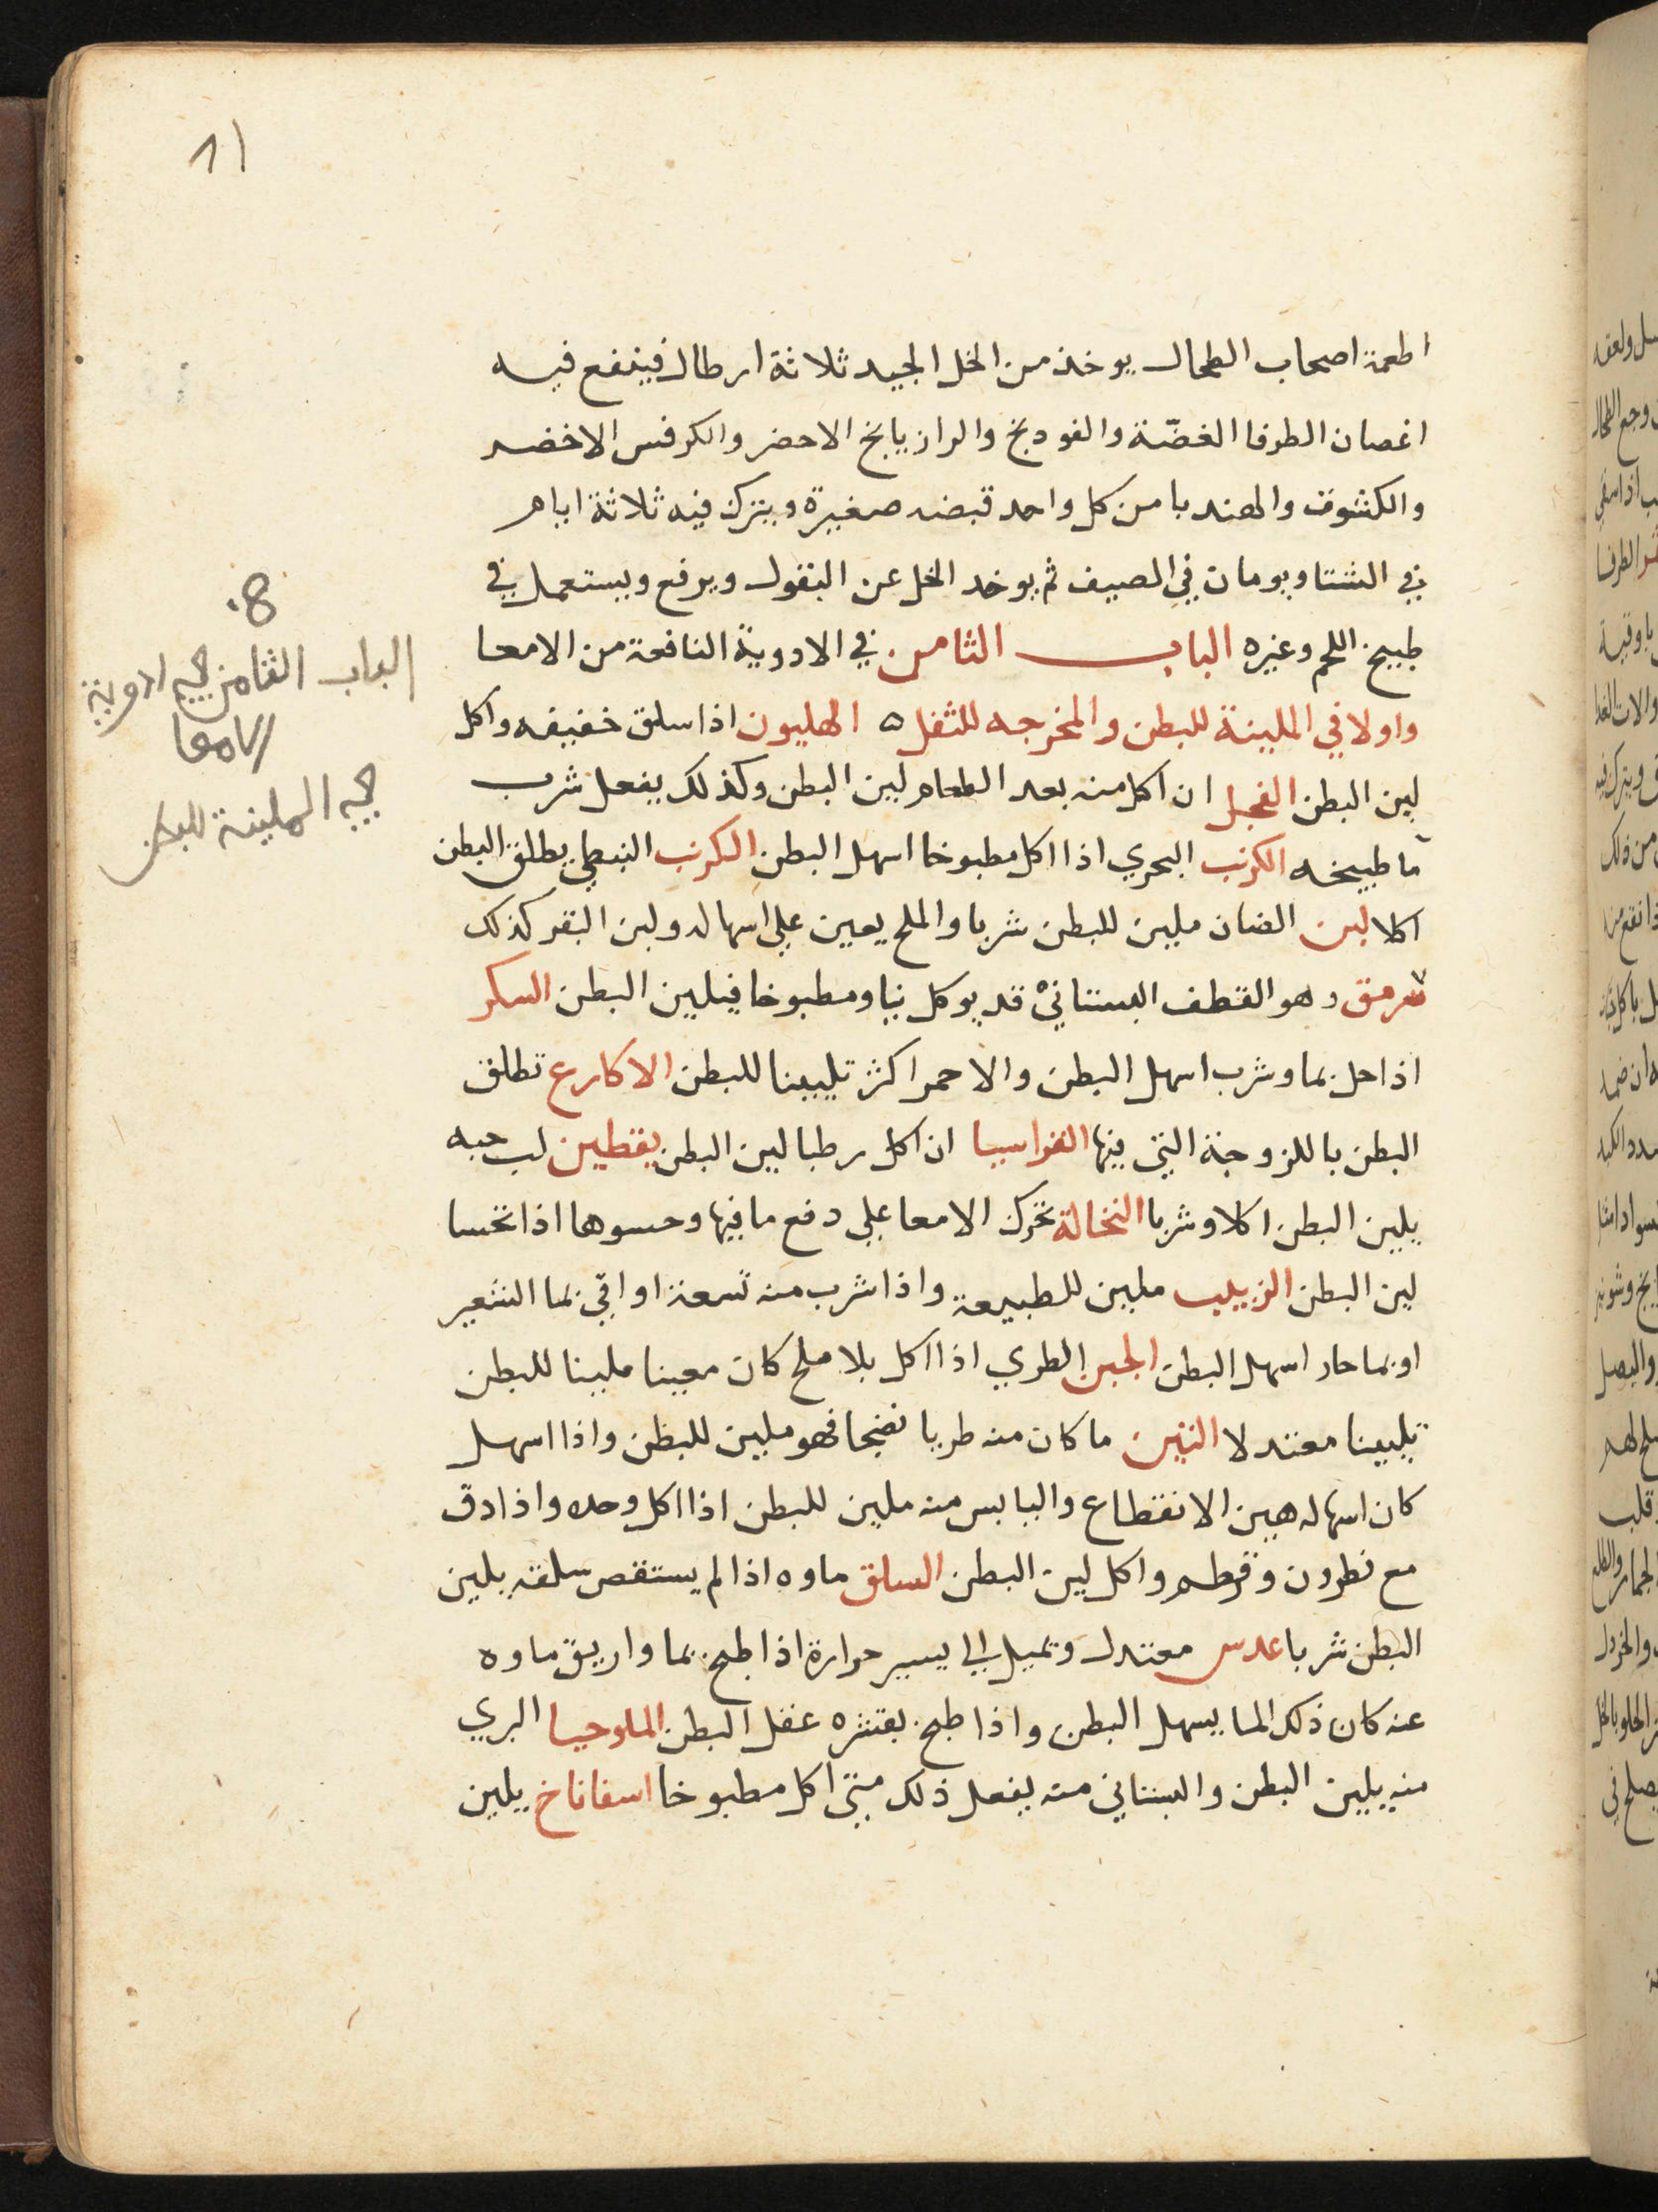 11
اطعمة اصحاب الطحال يوخذ من الخل الجيد ثلاثة ارطال فينقع فيه
اغصان الطرفا الغضّة والفودنج والرازيانج الاخضر والكرفس الاخضر
والكشوت والهندبا من كل واحد قبضه صغيرة ويترك فيه ثلاثة ايام
في الشتا ويومان في الصيف ثم يوخد الخل عن البقول ويرفع ويستعمل في
طبيخ اللحم وغيره الباب الثامن في الادوية النافعة من الامعا
واولا في الملينة للبطن والمخرجه للثفل ه الهليون اذا سلق خفيفه واكل
لين البطن الفجل ان اكل منه بعد الطعام لين البطن وكذلك يفعل شرب
ما طبيخه الكرنب البحري اذا اكل مطبوخا اسهل البطن الكرنب النبطي يطلق البطن
اكلا لبن الضان ملين للبطن شربا والملح يعين علي اسهاله ولبن البقر كذلك
سرمق وهو القطف البستاني قد يوكل نيا ومطبوخا فيلين البطن السكر
اذا حل بما وشرب اسهل البطن والاحمر اكثر تليينا للبطن الاكارع تطلق
البطن باللزوجة التي فيها القراسيا ان اكل رطبا لين البطن يقطين لب حبه
يلين البطن اكلا وشربا النخالة تحرك الامعا علي دفع ما فيها وحسوها اذا تحسا
لين البطن الزبيب ملين للطبيعة واذا شرب منه تسعة اواقي بما الشعير
او بما حار اسهل البطن الجبن الطري اذا اكل بلا ملح كان معينا ملينا للبطن
تليينا معتدلا التين ما كان منه طريا نضيجا فهو ملين للبطن واذا اسهل
كان اسهاله هين الانقطاع واليابس منه ملين للبطن اذا اكل وحده واذا دق
مع نطرون وقرطم واكل لين البطن السلق ماوه اذا لم يستقص سلقه يلين
البطن شربا عدس معتدل وتميل الي يسير حرارة اذا طبخ بما واريق ماوه
عنه كان ذلك الما يسهل البطن واذا طبخ بقشره عقل البطن الملوخيا البري
منه يلين البطن والبستاني منه يفعل ذلك متي اكل مطبوخا اسفاناخ يلين
8.
الباب الثامن في ادوية
الامعا
في الملينة للبطن